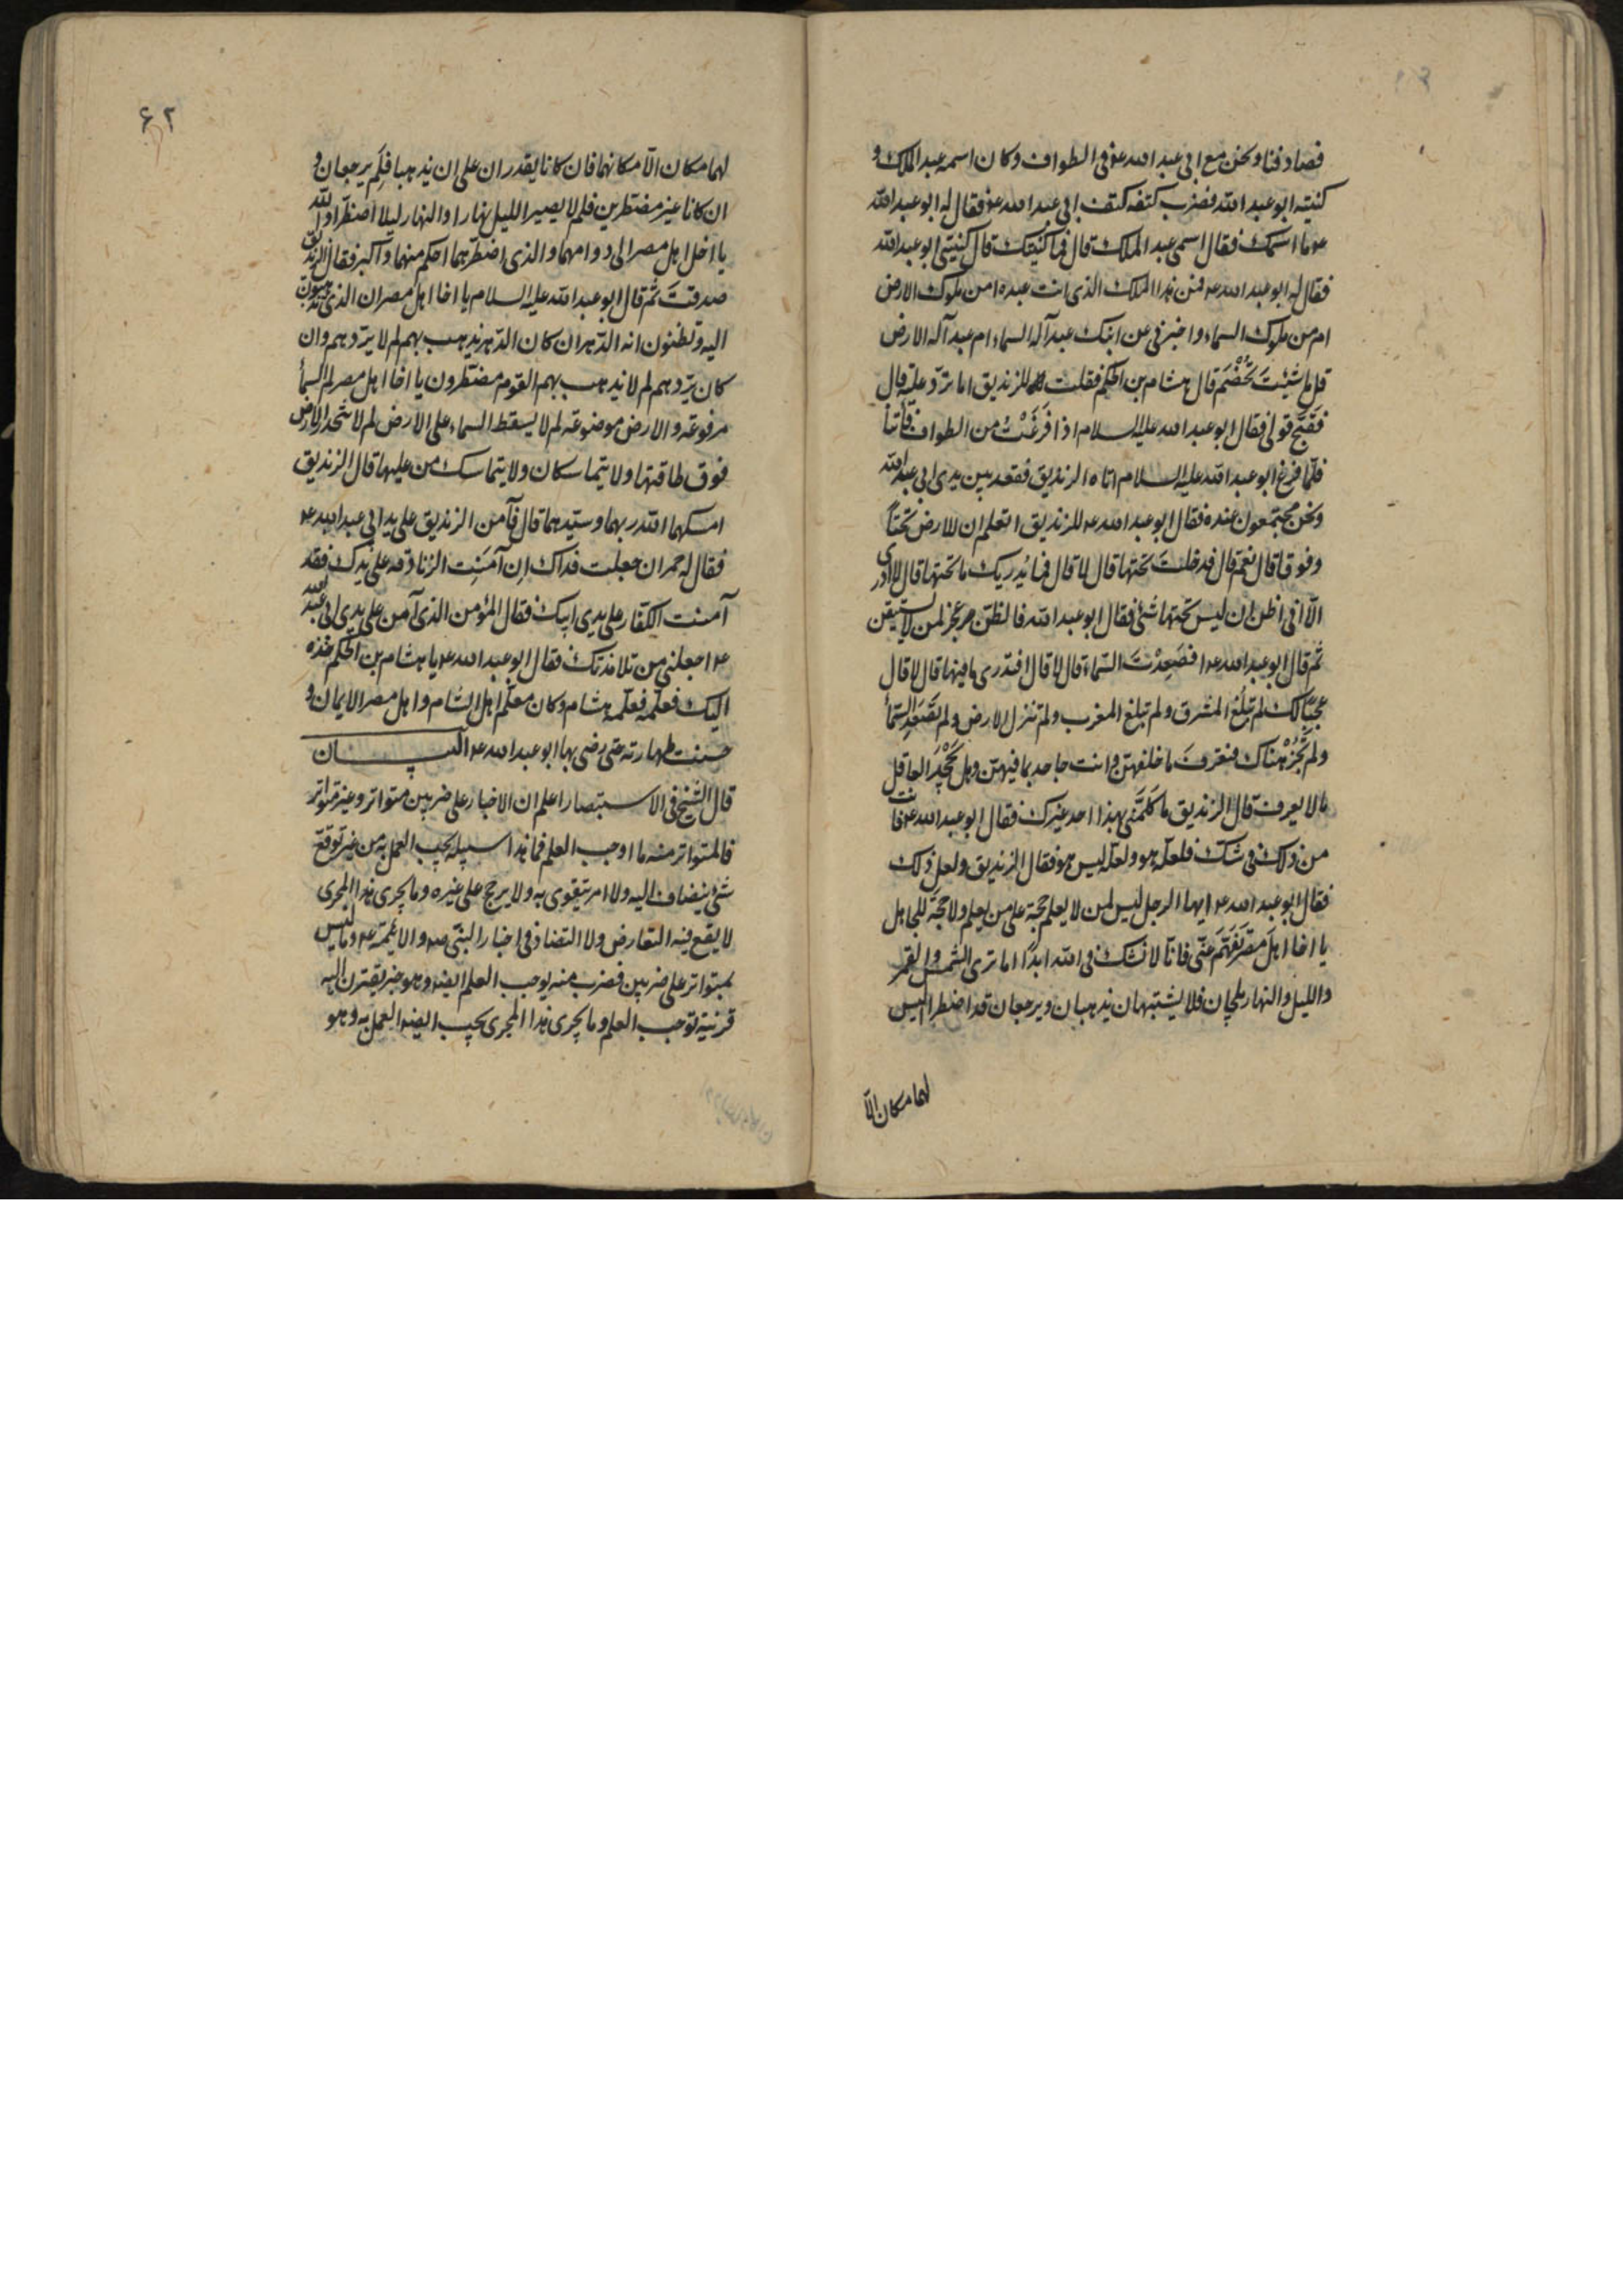 فصادفنا ونحن مع ابي عبد الله ع في الطواف وكان اسمه عبد الملك و
كنيته ابو عبد الله فضرب كتفه كتف ابي عبد الله ع فقال له ابو عبد الله
ع ما اسمك فقال اسمي عبد الملك قال فما كنيتك قال كنيتي ابو عبد الله
فقال له ابو عبد الله ع فمن هذا الملك الذي انت عبده امن ملوك الارض
ام من ملوك السماء واخبرني عن ابنك عبد آله السماء ام عبد آله الارض
قل ما شئت تخصم قال هشام بن الحكم فقلت للزنديق اما ترد عليه قال
فقبح قولي فقال ابو عبد الله عليه السلام اذا فرغت من الطواف فأتنا
فلما فرغ ابو عبد الله عليه السلام اتاه الزنديق فقعد بين يدي ابي عبد الله
ونحن مجتمعون عنده فقال ابو عبد الله ع للزنديق اتعلم ان للارض تحتاً
وفوقا قال نعم قال فدخلت تحتها قال لا قال فما يدريك ما تحتها قال لا ادري
الا اني اظن ان ليس تحتها شئ فقال ابو عبد الله فالظن عجز لمن لا يستيقن
ثم قال ابو عبد الله ع افصعدت السماء قال لا قال افتدري ما فيها قال لا قال
عجبا لك لم تبلغ المشرق ولم تبلغ المغرب ولم تنزل الارض ولم تصعد السمأ
ولم تجز هناك فتعرف ما خلفهن وانت جاحد بما فيهن وهل يجحد العاقل
ما لا يعرف قال الزنديق ما كلمني بهذا احد غيرك فقال ابو عبد الله ع فانت
من ذلك في شك فلعله هو ولعله ليس هو فقال الزنديق ولعل ذلك
فقال ابو عبد الله ع ايها الرجل ليس لمن لا يعلم حجة على من يعلم ولا حجة للجاهل
يا اخا اهل مصر تفهم عني فانا لا نشك في الله ابدا اما ترى الشمس والقمر
والليل والنهار يلجان فلا يشتبهان يذهبان ويرجعان قد اضطرا ليس
لهما مكان الا
۶۲
لهما مكان الا مكانهما فان كانا يقدران على ان يذهبا فلم يرجعان و
ان كانا غير مضطرين فلم لا يصير الليل نهارا والنهار ليلا اضطرا والله
يا اخا اهل مصر الى دوامهما والذي اضطرهما احكم منهما واكبر فقال الزنديق
صدقت ثم قال ابو عبد الله عليه السلام يا اخا اهل مصر ان الذي تذهبون
اليه وتظنون انه الدهر ان كان الدهر يذهب بهم لم لا يردهم وان
كان يردهم لم لا يذهب بهم القوم مضطرون يا اخا اهل مصر لم السمأ
مرفوعة والارض موضوعة لم لا يسقط السماء على الارض لم لا تنحدر الارض
فوق طاقتها ولا يتماسكان ولا يتماسك من عليها قال الزنديق
امسكهما الله ربهما وسيدهما قال فآمن الزنديق على يدي ابي عبد الله ع
فقال له حمران جعلت فداك ان آمنت الزنادقة على يدك فقد
آمنت الكفار على يدي ابيك فقال المؤمن الذي آمن على يدي ابي عبد الله
ع اجعلني من تلامذتك فقال ابو عبد الله ع يا هشام بن الحكم خذه
اليك فعلمه فعلمه هشام وكان معلم اهل الشام واهل مصر الايمان و
حسنت طهارته حتى رضي بها ابو عبد الله ع البيان
قال الشيخ في الاستبصار اعلم ان الاخبار على ضربين متواتر وغير متواتر
فالمتواتر منه ما اوجب العلم فما هذا سبيله يجب العمل به من غير توقع
شئ ينضاف اليه ولا امر يتقوى به ولا يرجح على غيره وما يجري هذا المجرى
لا يقع فيه التعارض ولا التضاد في اخبار النبي ص والائمة ع وما ليس
بمتواتر على ضربين فضرب منه يوجب العلم ايضا وهو خبر يقترن اليه
قرينة توجب العلم وما يجري هذا المجرى يجب ايضا العمل به وهو